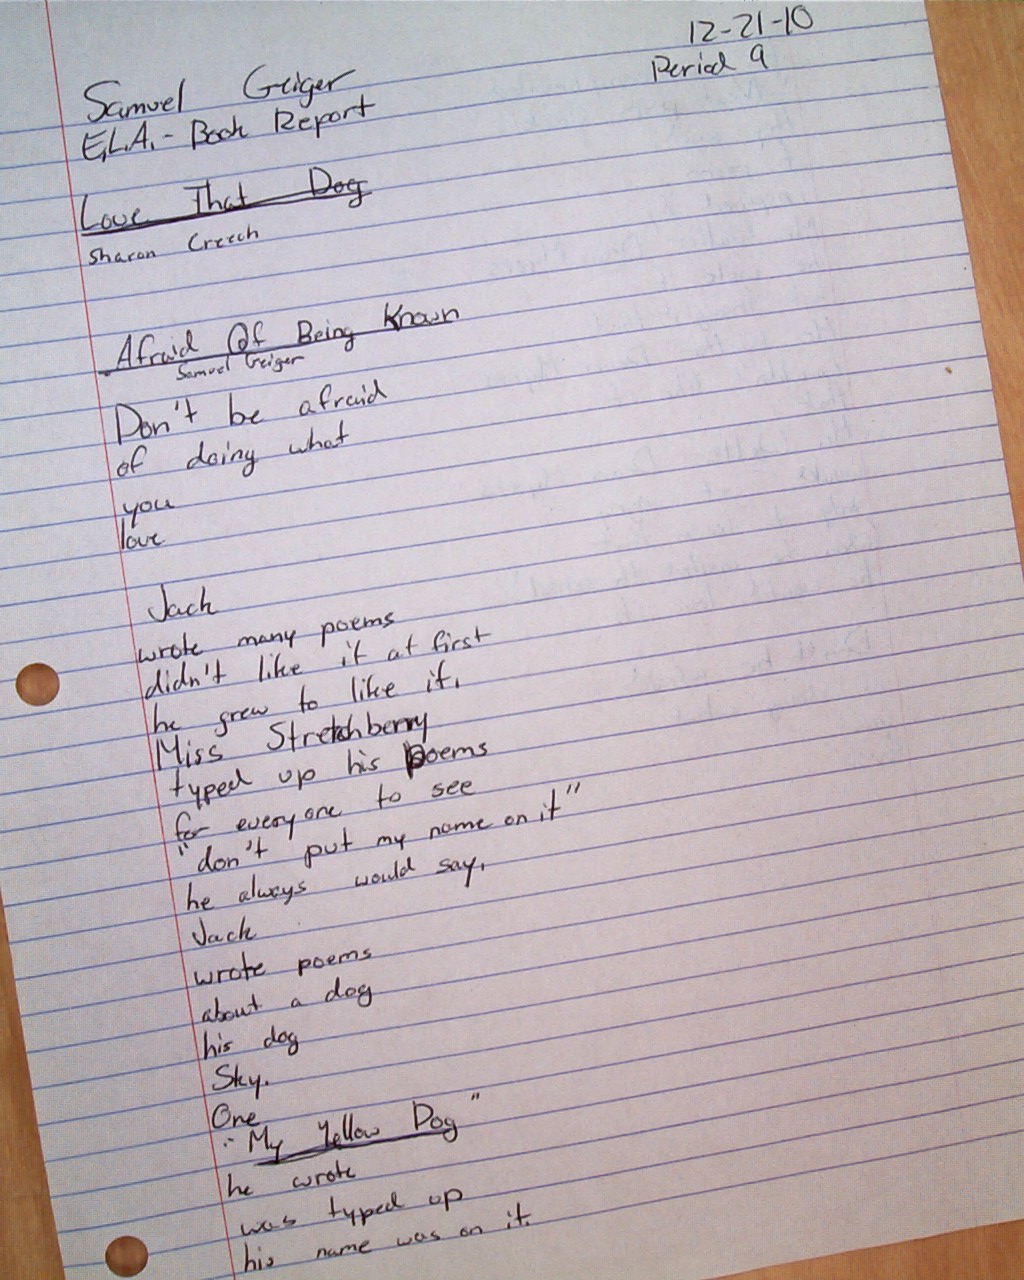 12-21-10
Period 9
Samuel Geiger
E.L.A. - Book Report
Love That Dog
Sharon Creech
Afraid Of Being Known
Samuel Geiger
Don't be afraid
of doing what
you
love
Jack
wrote many poems
didn't like it at first
he grew to like it.
Miss Stretchberry
typed up his poems
for everyone to see
"don't put my name on it"
he always would say.
Jack
wrote poems
about a dog
his dog
Sky.
One
"My Yellow Dog"
he wrote
was typed up
his name was on it.